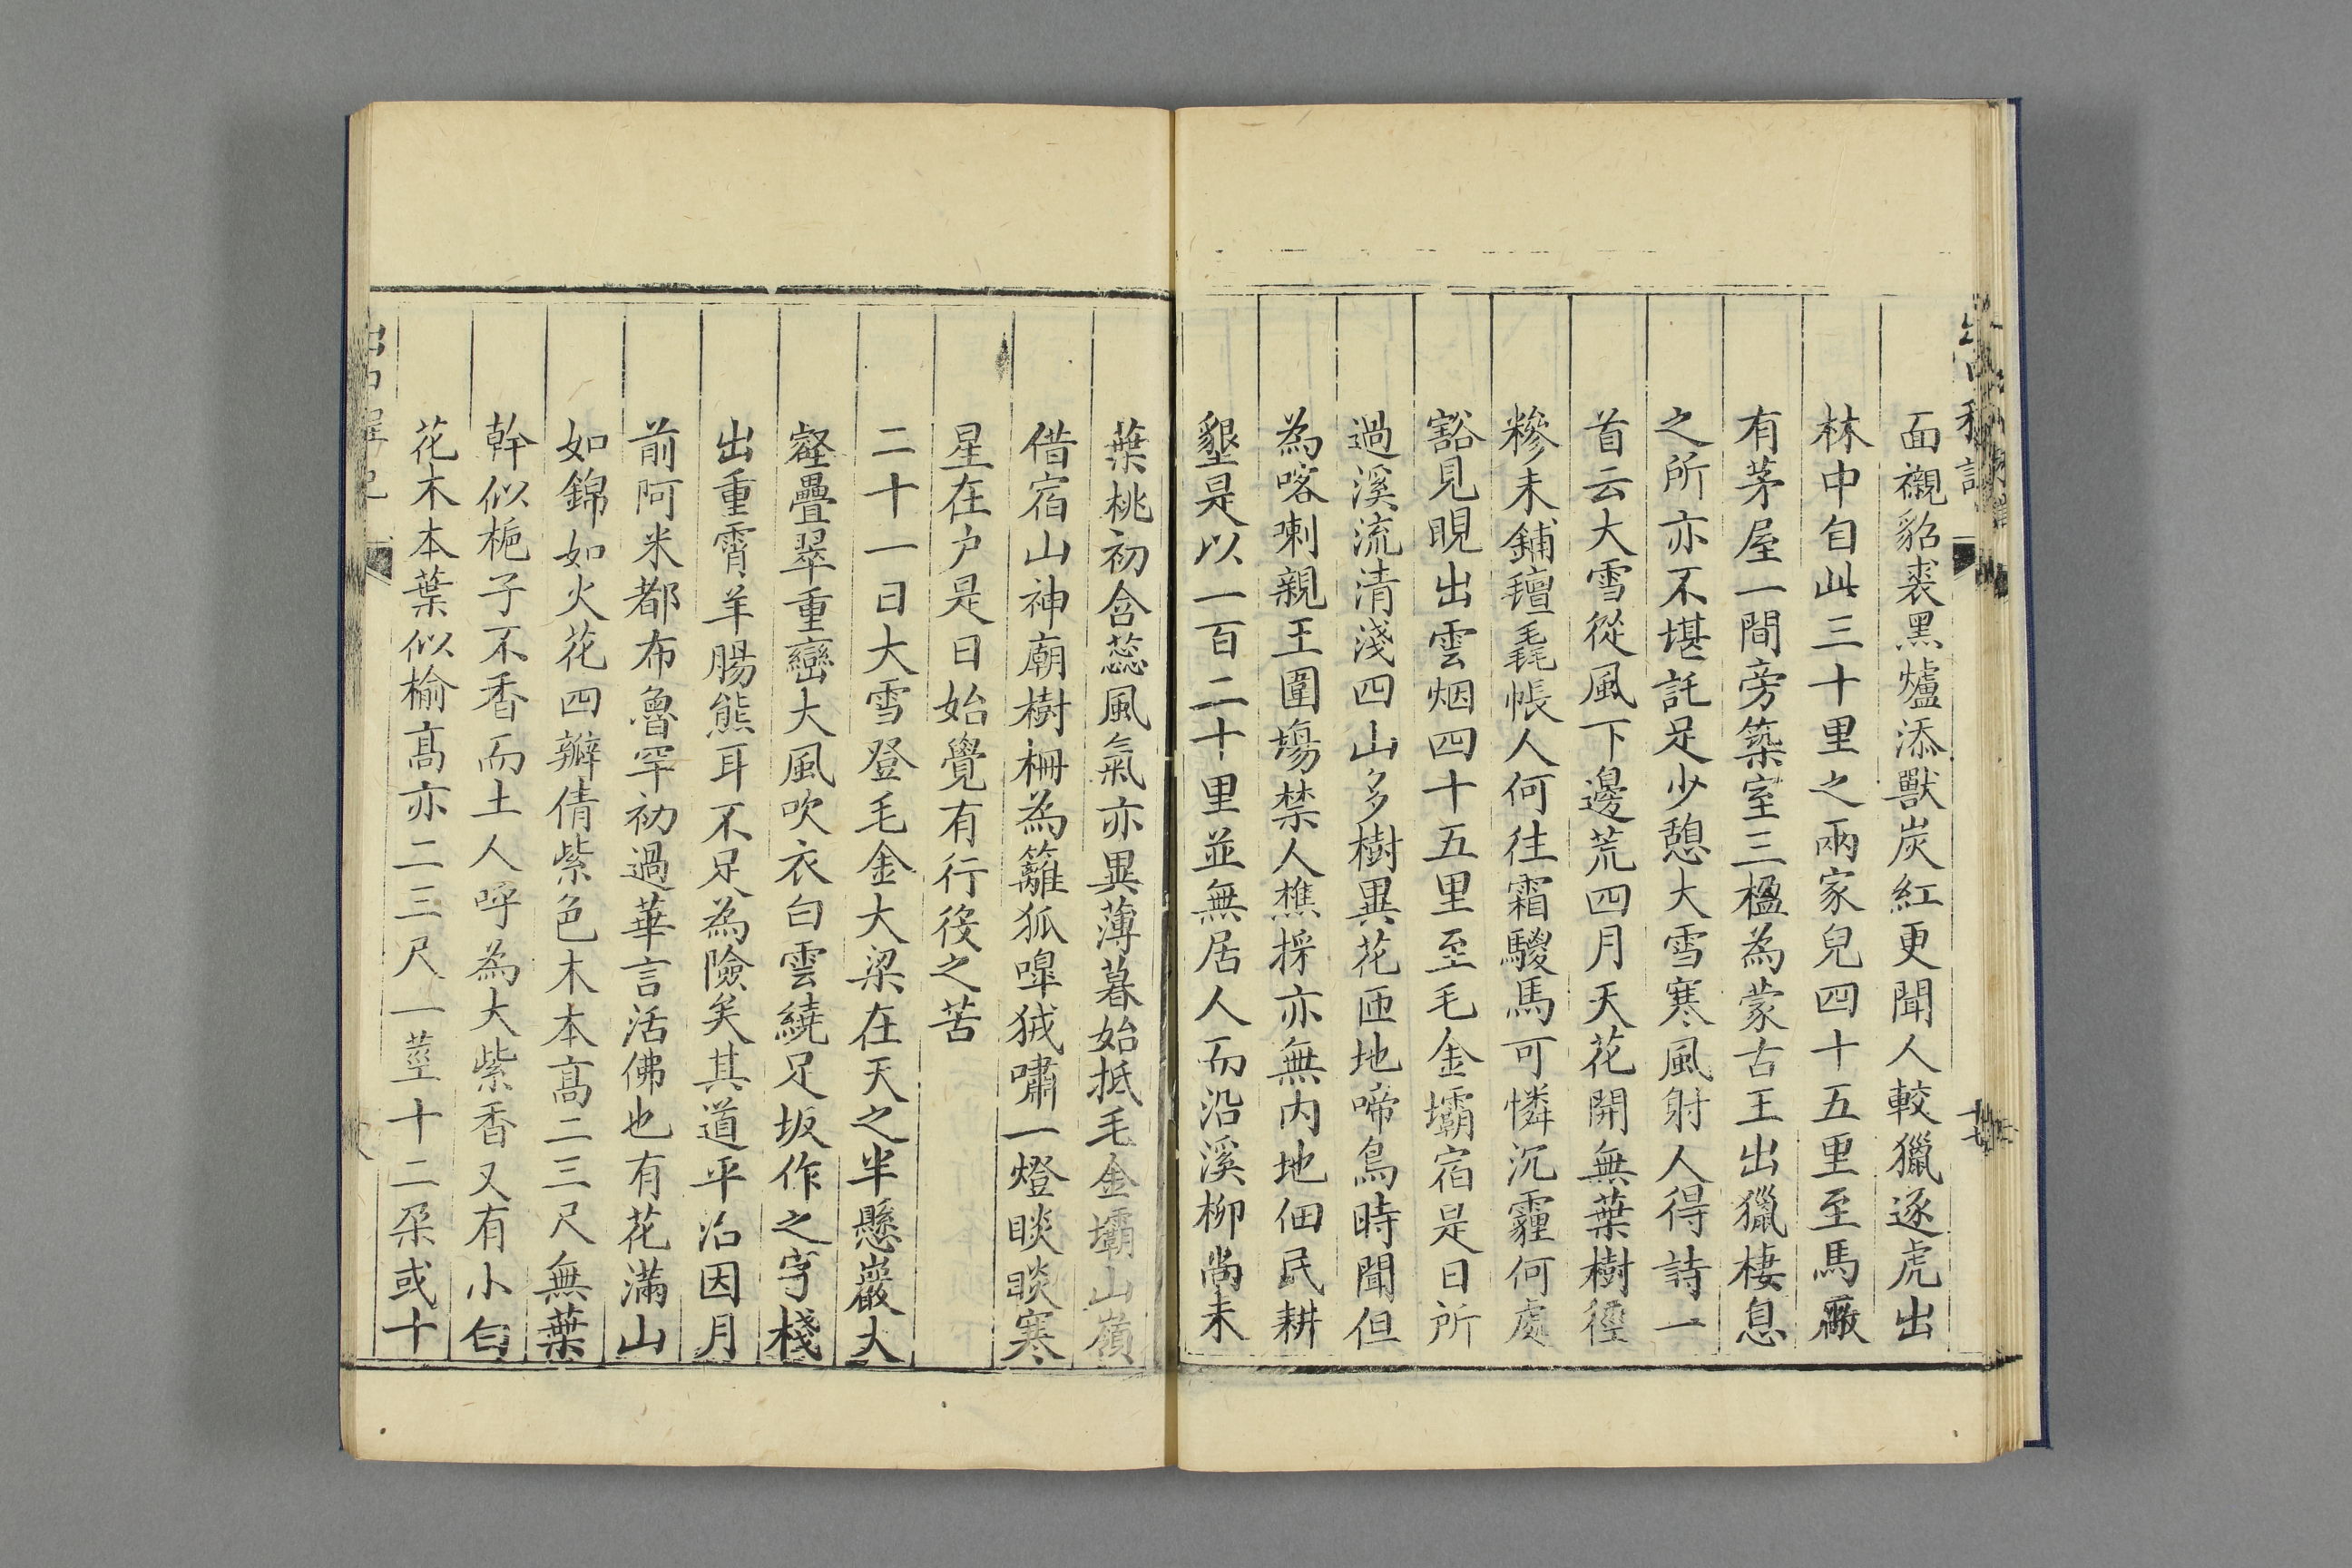 面襯貂裘黑爐添獸炭紅更聞人較獵逐虎出
林中自此三十里之兩家兒四十五里至馬厰
有茅屋一間旁築室三楹為蒙古王出獵棲息
之所亦不堪託足少憩大雪寒風射人得詩一
首云大雪從風下邊荒四月天花開無葉樹徑
糝未鋪氊毳帳人何往霜騣馬可憐沉霾何處
豁見晛出雲烟四十五里至毛金壩宿是日所
過溪流清淺四山多樹異花匝地啼鳥時聞但
為喀喇親王圍塲禁人樵採亦無內地佃民耕
墾是以一百二十里並無居人而沿溪柳尚未
葉桃初含蕊風氣亦異薄暮始抵毛金壩山嶺
借宿山神廟樹柵為籬狐嘷狨嘯一燈睒睒寒
星在户是日始覺有行役之苦
二十一日大雪登毛金大梁在天之半懸巖大
壑疊翠重巒大風吹衣白雲繞足坂作之字棧
出重霄羊腸熊耳不足為險矣其道平治因月
前阿米都布魯罕初過華言活佛也有花滿山
如錦如火花四瓣倩紫色木本髙二三尺無葉
幹似梔子不香而土人呼為大紫香又有小白
花木本葉似榆髙亦二三尺一莖十二朶或十